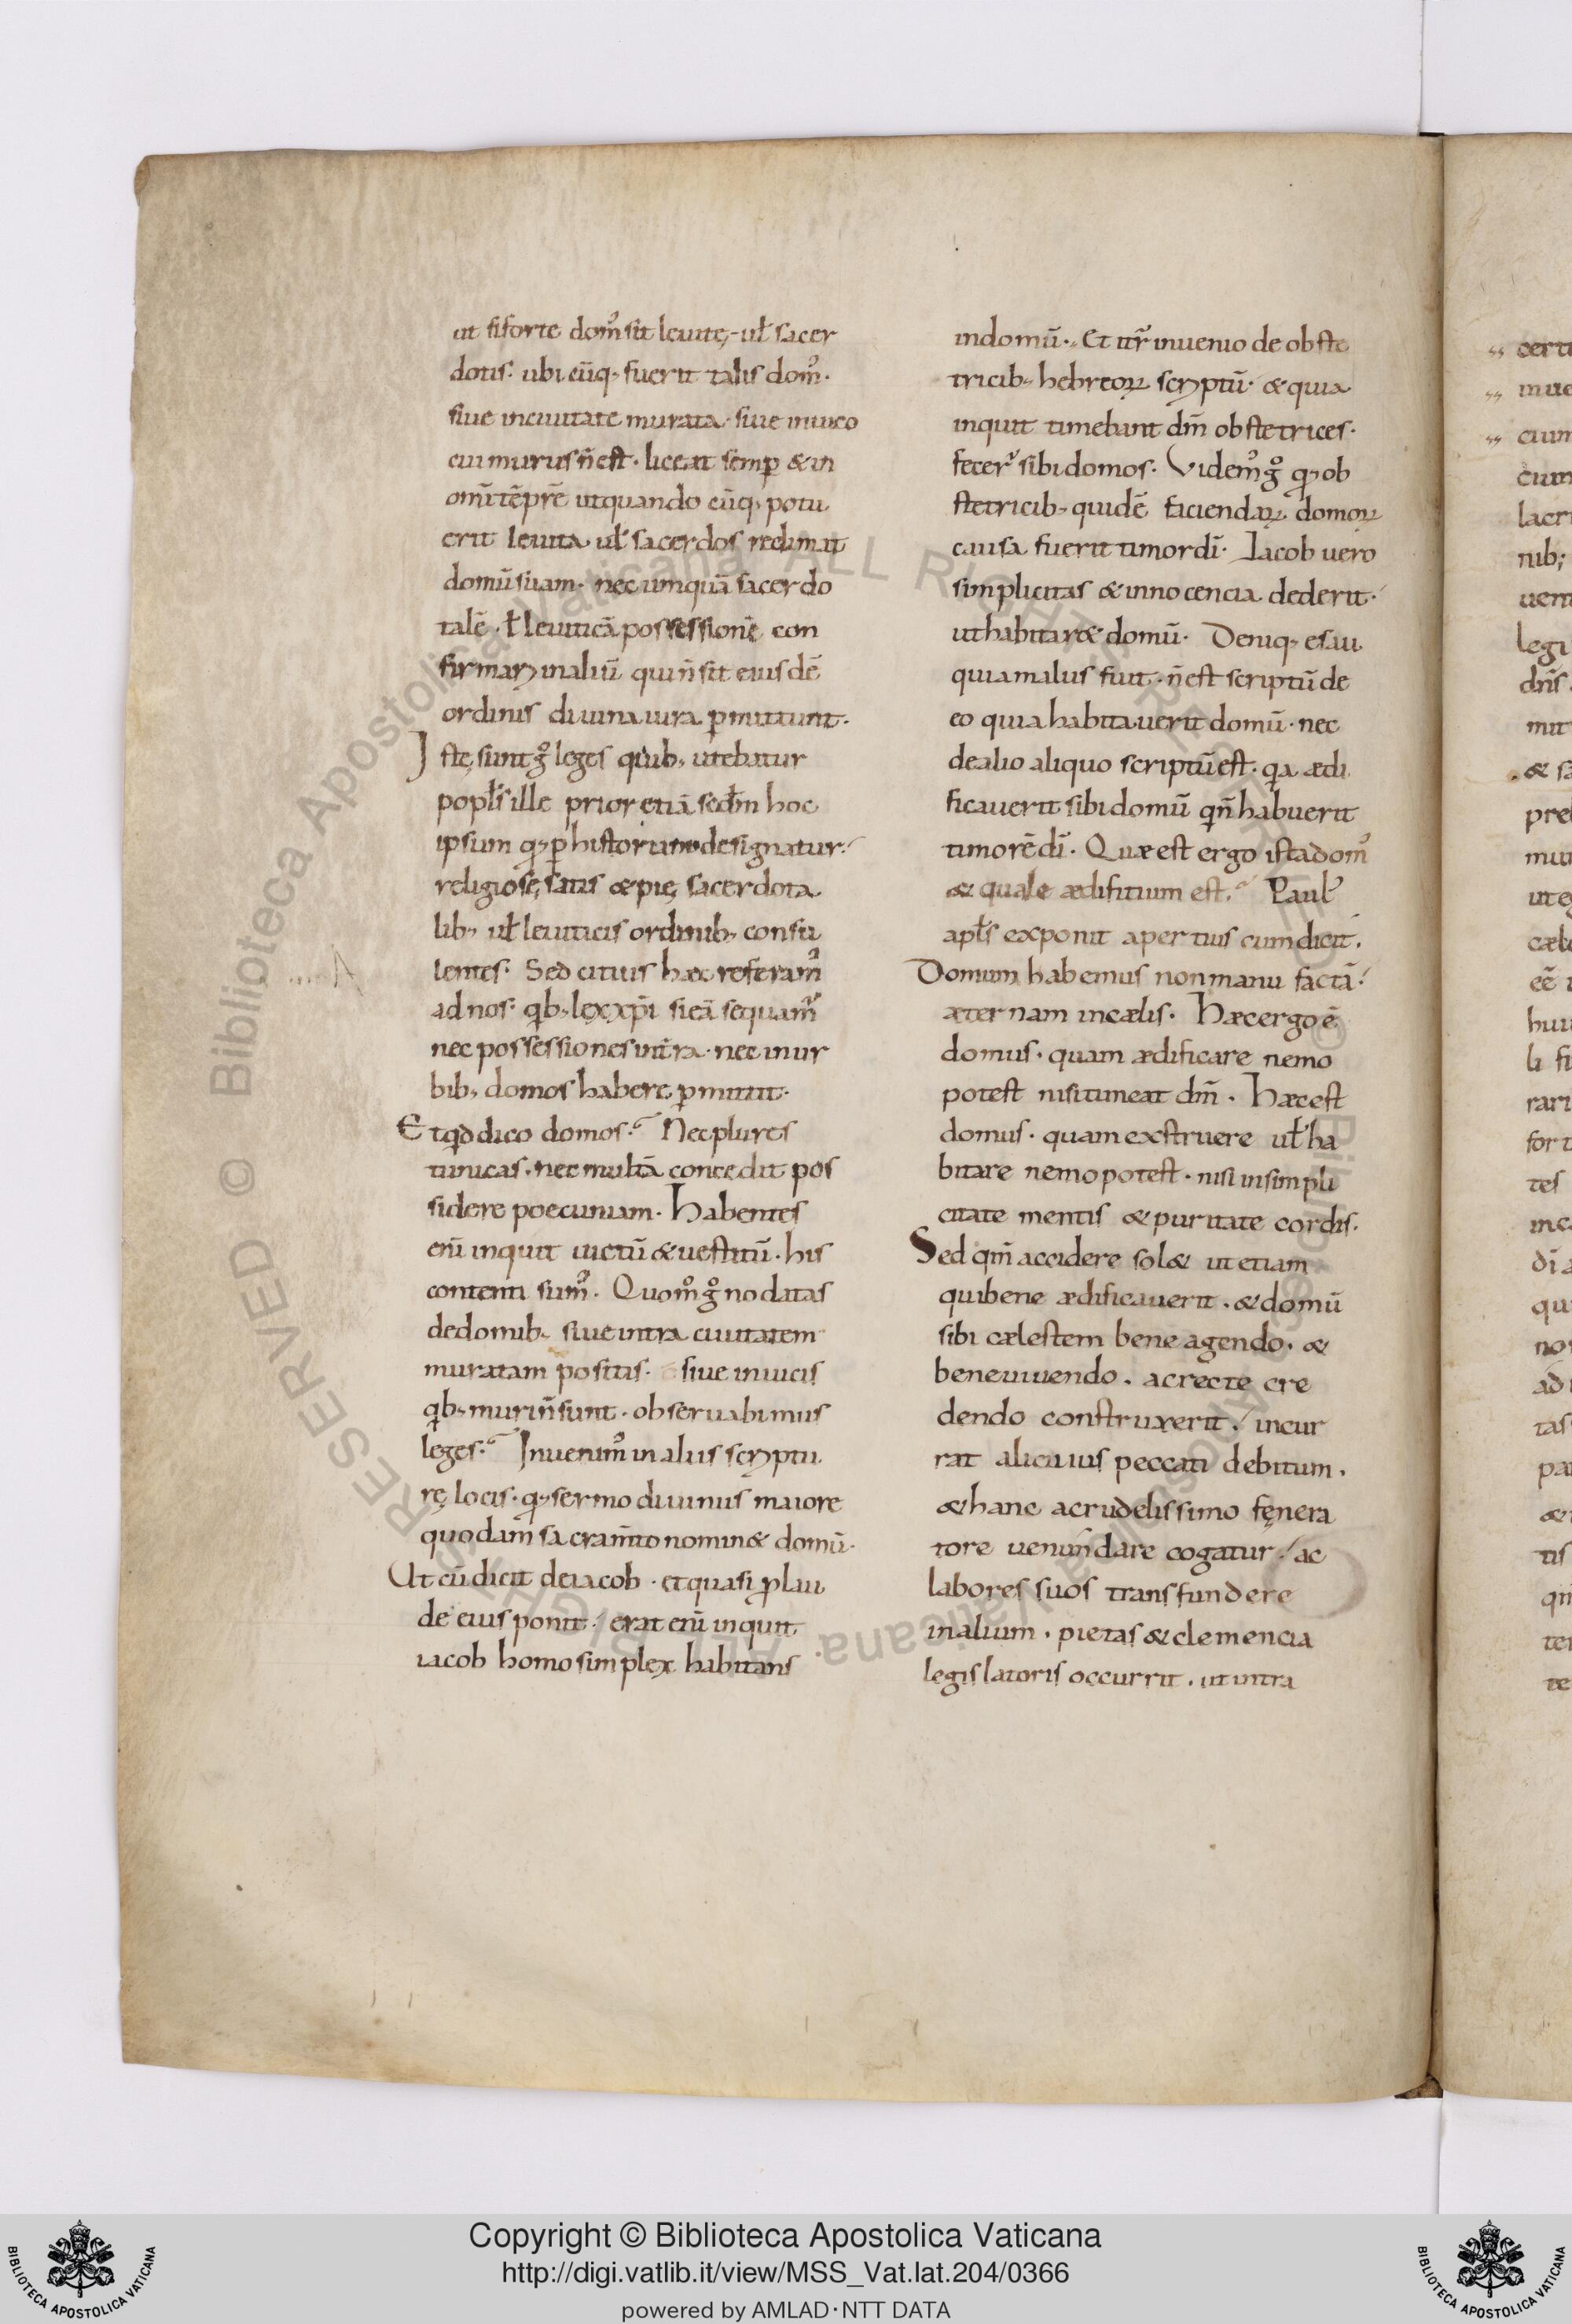 ut si forte dom᾽ sit leuitę, ul̃ sacer
dotis. ubicūq; fuerit talis dom᾽.
siue in ciuitate murata. siue in uico
cui murus ñ est. liceat semꝑ & in
om̄i tēpr̄e ut quando cūq; potu
erit leuita ul̃ sacerdos redimat
domū suam. nec umquā sacerdo
talē. ł leuiticā possessionē con
firmari in aliū qui ñ sit eiusdē
ordinis diuina iura ꝑmittunt.
Istę sunt g̊ leges quib; utebatur
popl̃s ille prior etiā scd̃m hoc
ipsum q; ꝑ historiam designatur.
religiosę satis & pię sacerdota
lib; ul̃ leuiticis ordinib; consu
lentes. Sed citius hæc referam᾽
ad nos. qb; lex xp̄i si eā sequam᾽
nec possessiones in tr̃a. nec in ur
bib; domos habere ꝑmittit.
Et qd dico domos. Nec plures
tunicas. nec multā concedit pos
sidere poecuniam. Habentes
eni̅ inquit uictū & uestitū. his
contenti sum᾽. Quom̊ g̊ nodatas
de domib; siue intra ciuitatem
muratam positis. siue in uicis
qb; muri ñ sunt. obseruabimus
leges. Inuenim᾽ in aliis scriptu
rę locis. q; sermo diuinus maiore
quodam sacram̄to nomin& domū.
Ut cū dicit de iacob. et quasi ꝓ lau
de eius ponit. erat eni̅ inquit
iacob homo simplex habitans
in domū. Et itr̃ inuenio de obste
tricib; hebreoꝝ scriptū. & quia
inquit timebant dm̄ obstetrices.
fecer᾽ sibi domos. Videm᾽ g̊ q; ob
stetricib; quidē faciendaꝝ domoꝝ
causa fuerit timor dī. Iacob uero
simplicitas & innocencia dederit.
ut habitar& domū. Deniq; esau
quia malus fuit. ñ est scriptū de
eo quia habitauerit domū. nec
de alio aliquo scriptū est. qa ædi
ficauerit sibi domū q ñ habuerit
timorē dī. Quæ est ergo ista dom᾽
& quale ædifitium est. Paul᾽
apl̃s exponit apertius cum dicit.
Domum habemus non manu factā.
æternam in cælis. Hæc ergo ē
domus. quam ædificare nemo
potest nisi timeat dm̄. Hæc est
domus. quam exstruere ul̃ ha
bitare nemo potest. nisi in simpli
citate mentis & puritate cordis.
Sed qm̄ accidere sol& ut etiam
qui bene ædificauerit. & domū
sibi cælestem bene agendo. &
bene uiuendo. ac recte cre
dendo construxerit. incur
rat alicuius peccati debitum.
& hanc a crudelissimo fęnera
tore uenundare cogatur. ac
labores suos transfundere
in alium. pietas & clemencia
legislatoris occurrit. ut intra
Copyright © Biblioteca Apostolica Vaticana
http://digi.vatlib.it/view/MSS_Vat.lat.204/0366
powered by AMLAD·NTT DATA